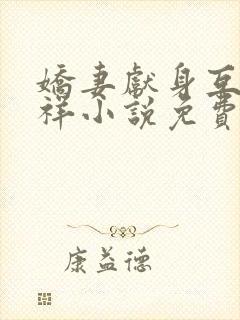 嬌妻獻身互
祥小說免費
康益德